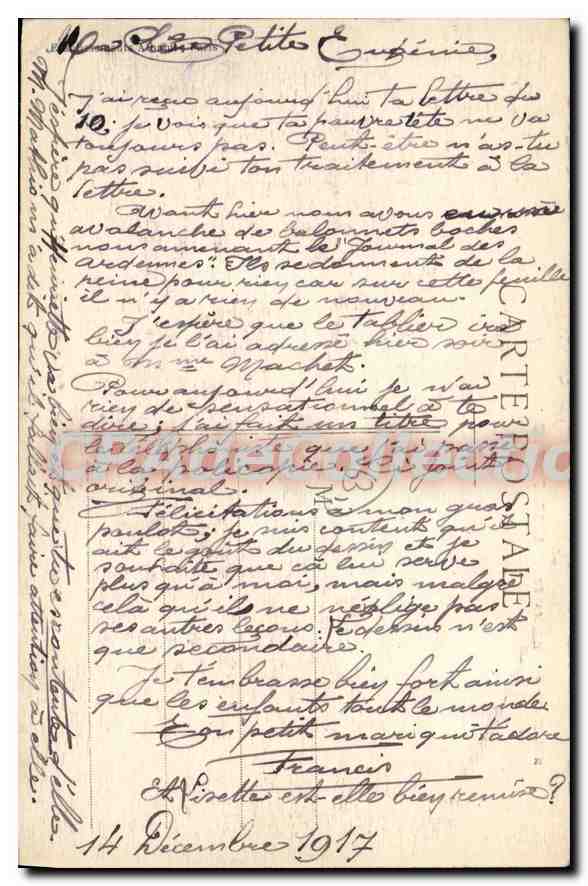 Ma Petite Eugénie,
J'ai reçu aujourd'hui ta lettre du
10, je vois que ta pauvre tête ne va
toujours pas. Peut-être n'as-tu
pas suivi ton traitement à la
lettre.
Avant hier nous avons eu une
avalanche de balonnets boches
nous amenant le "Journal des
Ardennes". Ils se donnent de la
peine pour rien car sur cette feuille
il n'y a rien de nouveau.
J'espère que le tablier ira
bien je l'ai adressé hier soir
à Mme Machet.
Pour aujourd'hui je n'ai
rien de sensationnel à te
dire; j'ai fait un titre pour
que
à la
original.
Félicitations à mon gros
poulot, je suis content qu'il
ait le goût du dessin et je
souhaite que cà lui serve
plus qu'à moi, mais malgré
celà qu'il ne néglige pas
ses autres leçons: le dessin n'est
que secondaire.
Je t'embrasse bien fort ainsi
que les enfants tout le monde
Ton petit mari qui t'adore
Francis
Et Lisette est-elle bien remise?
14 Décembre 1917
J'espère qu'Henriette va bien et que tu es contente d'elle
M. Mathis m'a dit qu'il fallait faire attention à elle.
CARTE POSTALE
CPA de Collection